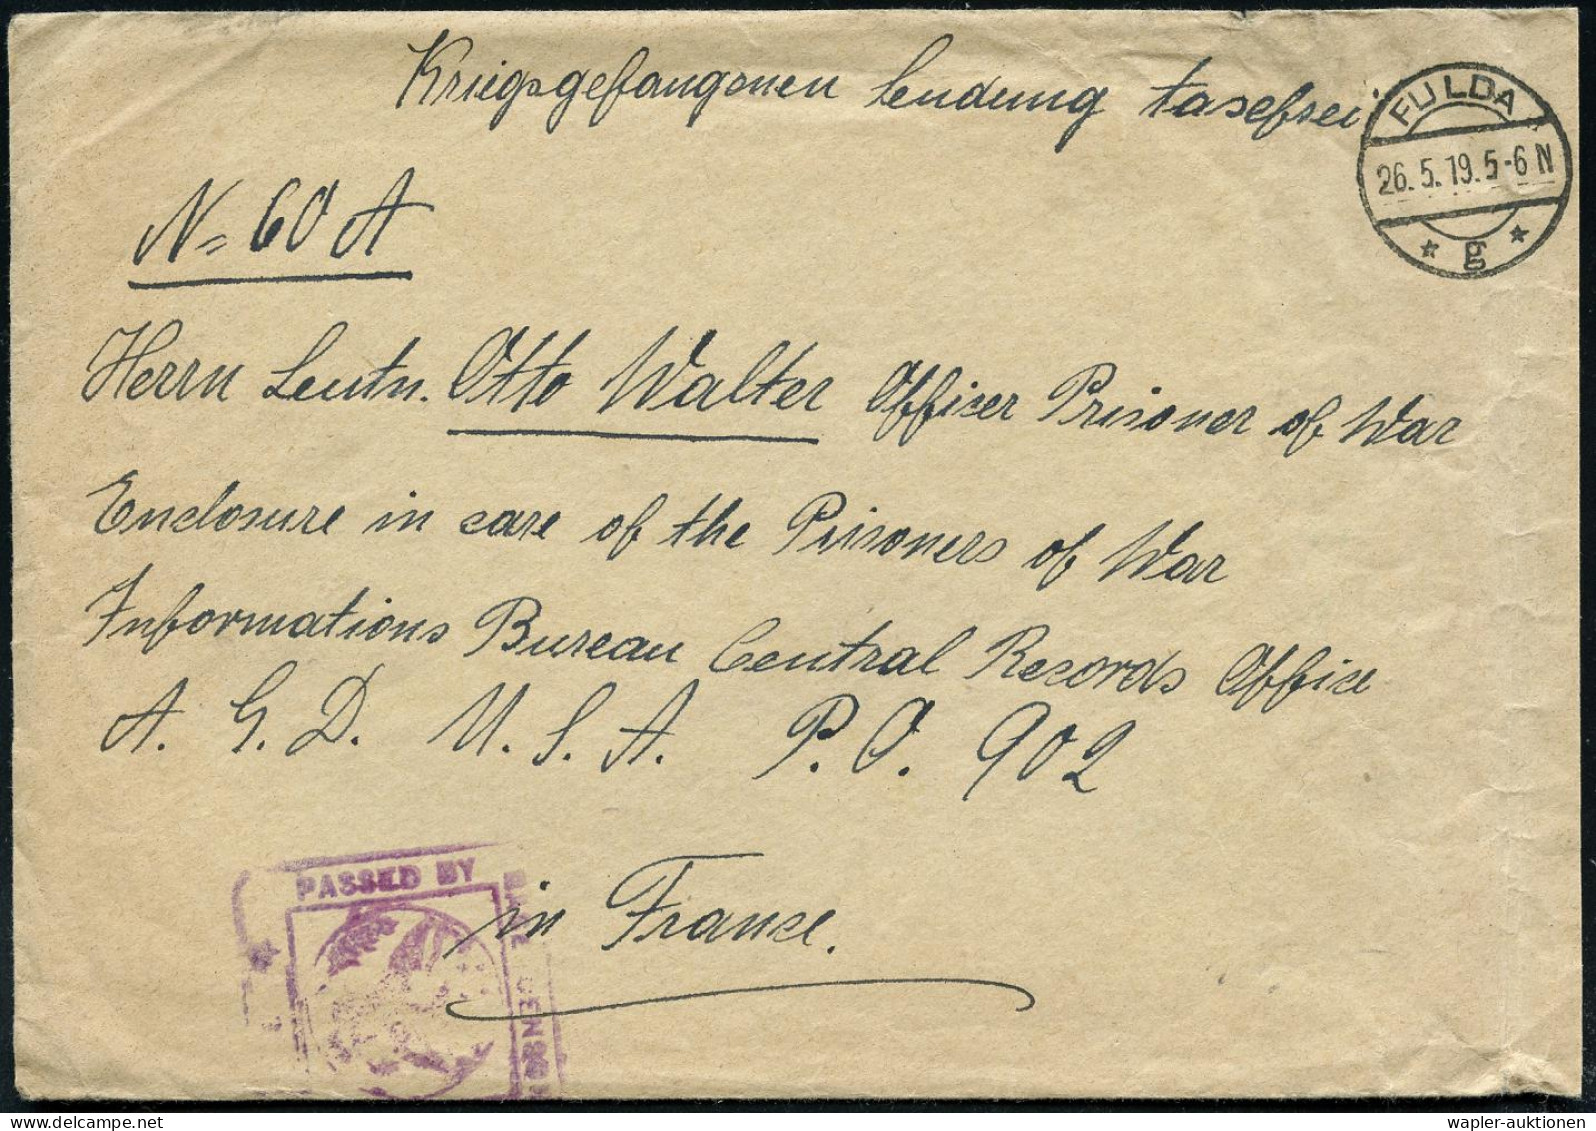 Kriegsgefangenen Sendung taxefrei
FULDA
26. 5. 19. 5-6 N
* g *
N= 60 A
Herrn Leutn. Otto Walter Officer Prisoner of War
Enclosure in care of the Prisoners of War
Informations Bureau Central Records Office
A. G. D. U. S. A. P. O. 902
in France.
PASSED BY
BASE CENSOR
wapler-auktionen